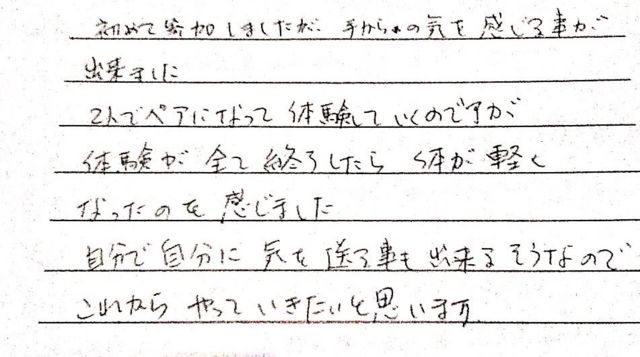 初めて参加しましたが、手からの気を感じる事が
出来ました
2人でペアになって体験していくのですが
体験が全て終了したら体が軽く
なったのを感じました
自分で自分に気を送る事も出来るそうなので
これからやっていきたいと思います